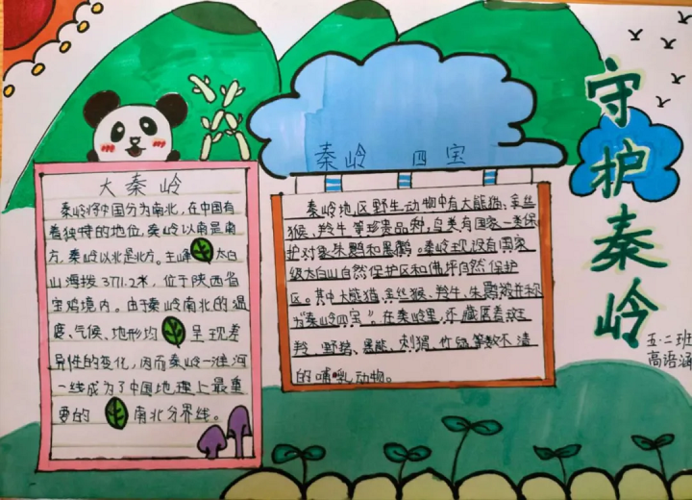 守护秦岭
五·二班
高语涵
大秦岭
秦岭将中国分为南北,在中国有
着独特的地位,秦岭以南是南
方,秦岭以北是北方。主峰太白
山海拨3771.2米,位于陕西省
宝鸡境内。由于秦岭南北的温
度、气候、地形均呈现差
异性的变化,因而秦岭一淮河
一线成为了中国地理上最重
要的南北分界线。
秦岭 四宝
秦岭地区野生动物中有大熊猫、金丝
猴、羚牛等珍贵品种,鸟类有国家一类保
护对象朱鹮和黑鹳。秦岭现设有国家
级太白山自然保护区和佛坪自然保护
区。其中大熊猫、金丝猴、羚牛、朱鹮被并称
为"秦岭四宝"。在秦岭里,还藏匿着斑
羚、野猪、黑熊、刺猬、竹鼠等数不清
的哺乳动物。